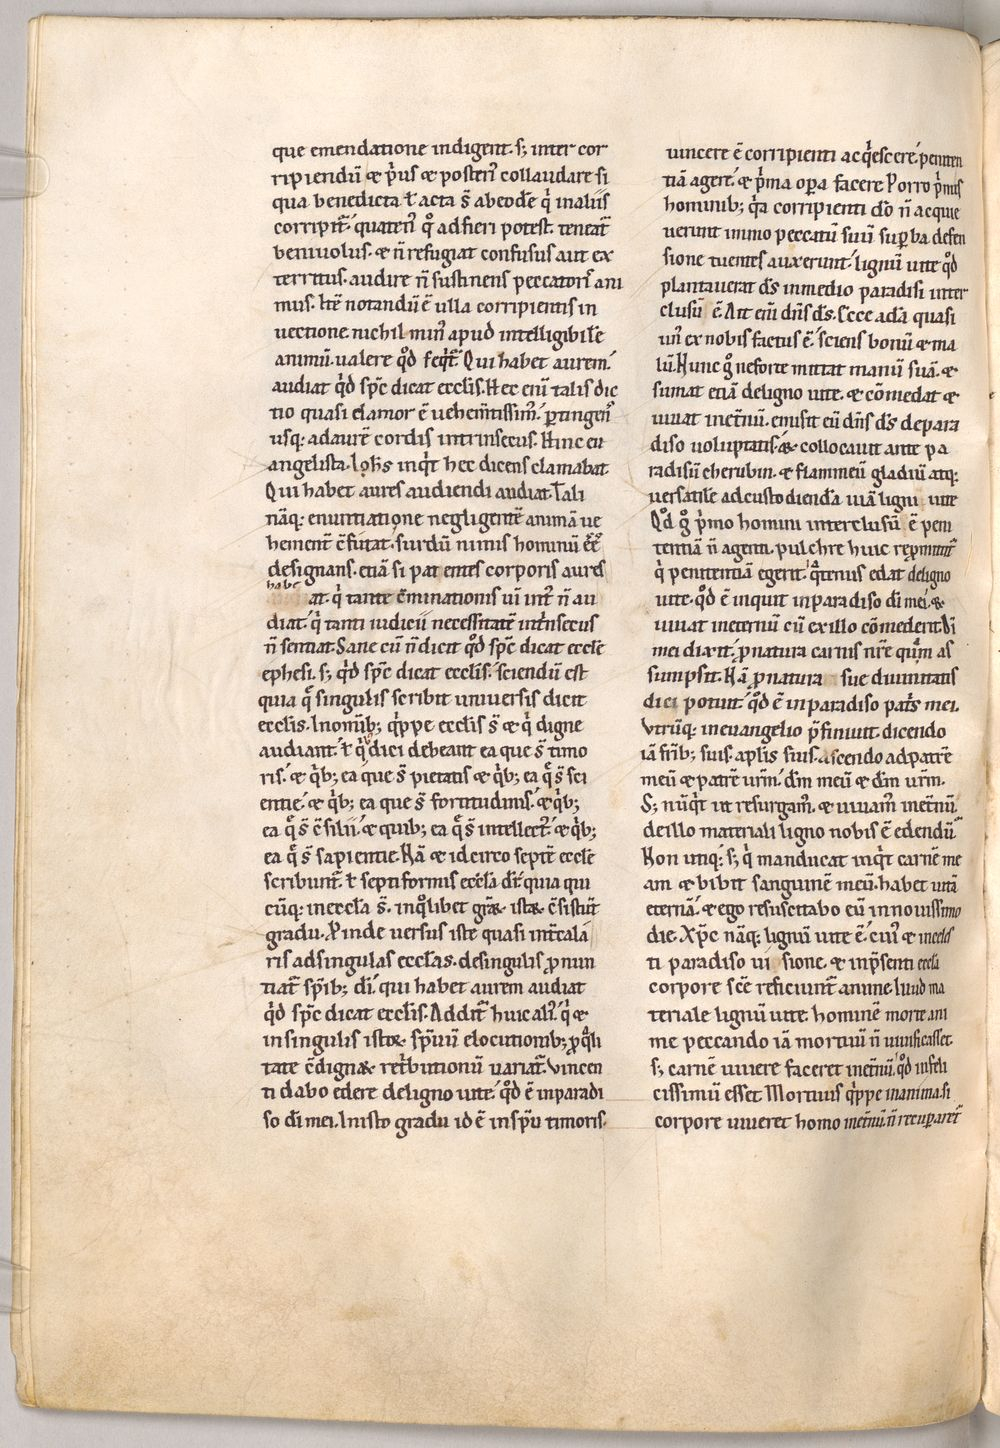 que emendatione indigent. s; inter cor
ripiendū & p̄us & posterī collaudare si
qua benedicta ł acta s̄ ab eode q̇ in aliis
corripit᷑. quaten᷒ qͦ ad fieri potest. teneat᷑
beniuolus. & n̄ refugiat confusus aut ex
territus. audire n̄ sustinens peccatorī ani
mus. Itē notandū ē ulla corripientis in
uectione. nichil min᷒ apud intelligibile
animū. ualere qͦd seq̇t᷑. Qui habet aurem.
audiat q̇d spc̄ dicat eccl̄is. Hec eni talis dic
tio quasi clamor ē uehem̄tissim᷒. ꝑtingen᷒
usq; ad aurē cordis intrinsecus. Hinc eu
angelista. Ioħs inq̇t hec dicens clamabat
Qui habet aures audiendi audiat. Tali
nāq; enuntiatione negligentē animā ue
hement̄ c̄futat. surdū nimis hominū eē
designans. etiā si patentes corporis aures
habe
at. q̇ tante c̄minationis uī int᷒ n̄ au
diat. q̇ tanti iudicii necessitatē int̄nsecus
n̄ sentiat. Sane cū n̄ dicit qͦd spc̄ dicat eccl̄e
ephesi. s; q̇d spc̄ dicat eccl̄is. sciendū est
quia q̄ singulis scribit uniuersis dicit
eccl̄is. In omīb; q̇ppe eccl̄is s̄ & q̇ digne
audiant. ł q̇b dici debeant ea que s̄ timo
ris. & q̇b; ea que s̄ pietatis & q̇b; ea q̄ s̄ sci
entie. & q̇b; ea que s̄ fortitudinis. & q̇b;
ea q̄ s̄ c̄silii. & quib; ea q̄ s̄ intellect᷒. & q̇b;
ea q̄ s̄ sapientie. Nā & idcirco septē eccl̄e
scribunt᷑. ł septiformis eccl̄a dr̄. quia qui
cūq; in eccl̄a s̄. in qͦlibet grā& ista& c̄sistūt
gradu. Proinde uersus iste quasi int̄cala
ris ad singulas eccl̄as. de singulis ꝓnun
tiat᷑ spīb; dī. qui habet aurem audiat
q̇d spc̄ dicat eccl̄is. Addit᷑ huic ali᷒. q̇ &
in singulis isto& spirituū elocutionib; ꝓ q̄li
tate c̄digna& ret̄butionū uariat᷑. Vincen
ti dabo edere de ligno uite. qͦd ē in paradi
so dī mei. In isto gradu id ē in spū timoris.
uincere ē corripienti acq̇escere. peniten
tiā agere. & p̄ma opera facere. Porro p̄mis
hominib; q̇a corripienti dō n̄ acquie
uerunt immo peccatū suū suꝑba defen
sione tuentes auxerunt. lignū uite qͦd
plantauerat dš in medio paradisi inter
clusū ē. Ait enī dn̄s dš. Ecce adā quasi
un᷒ ex nobis factus ē. sciens bonū & ma
lū. Nunc gͦ ne forte mittat manū suā. &
sumat etiā de ligno uite. & cōmedat &
uiuat inet̄nū. emisit eū dn̄s dš de para
diso uoluptatis. & collocauit ante pa
radisū cherubin. & flammeū gladiū atq;
uersatile ad custodiendā uiā ligni uite
Qͦd gͦ p̄mo homini interclusū ē peni
tentiā n̄ agenti. pulchre huic rep̄mittit᷑
q̇ penitentiā egerit. q̄tenus edat de ligno
uite. qͦd ē inquit in paradiso dī mei. &
uiuat in eternū cū ex illo cōmederit. Dī
mei dixit. ꝓ natura carnis nr̄e quā as
sumpsit. Nā ꝓ natura sue diuinitatis
dici potuit. qͦd ē in paradiso patris mei.
Vtrūq; in euangelio p̄finiuit. dicendo
iā frīb; suis. apl̄is suis. ascendo ad patrē
meū & patrē urm̄. dm̄ meū & dm̄ urm̄.
S; nūq̇t ut resurgam᷒. & uiuam᷒ inet̄nū.
de illo materiali ligno nobis ē edendū.
Non utiq;. s; q̇ manducat inq̇t carnē me
am & bibit sanguinē meū. habet uitā
eternā. & ego resuscitabo eū in nouissimo
die. Xp̄c nāq; lignū uite ē. cui᷒ & in celes
ti paradiso ui sione. & in p̄senti eccl̄a
corpore sc̄e reficiunt᷑ anime. Illud ma
teriale lignū uite. hominē morte ani
me peccando iā mortuū n̄ uiuificasset.
s; carnē uiuere faceret inet̄nū. qͦd infeli
cissimū esset. Mortuus q̇ppe in anima. si
corpore uiueret homo inet̄nū. n̄ recuꝑaret᷑